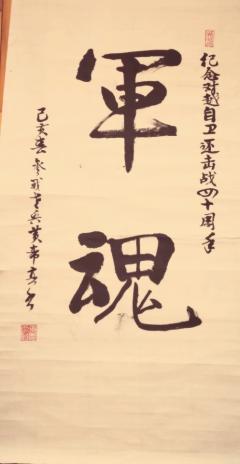 纪念对越自卫还击战四十周年
軍魂
己亥春参战老兵黄希